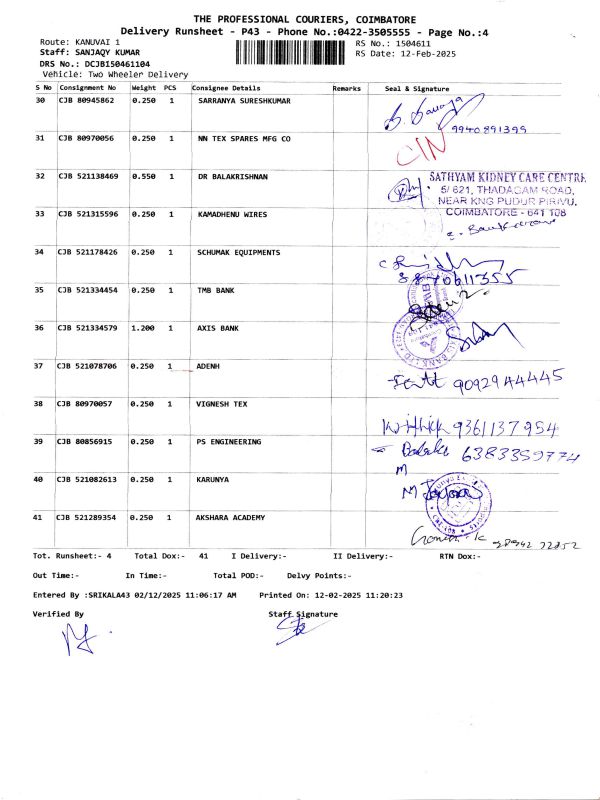 THE PROFESSIONAL COURIERS, COIMBATORE
Delivery Runsheet - P43 - Phone No.:0422-3505555 - Page No.:4
Route: KANUVAI 1 RS No.: 1504611
Staff: SANJAQY KUMAR RS Date: 12-Feb-2025
DRS No.: DCJB150461104
Vehicle: Two Wheeler Delivery
S No Consignment No Weight PCS Consignee Details Remarks Seal & Signature
30 CJB 80945862 0.250 1 SARRANYA SURESHKUMAR
9940891399
31 CJB 80970056 0.250 1 NN TEX SPARES MFG CO
32 CJB 521138469 0.550 1 DR BALAKRISHNAN
SATHYAM KIDNEY CARE CENTRE
5/ 621, THADAGAM ROAD,
NEAR KNG PUDUR PIRIVU,
COIMBATORE - 641 108
33 CJB 521315596 0.250 1 KAMADHENU WIRES
34 CJB 521178426 0.250 1 SCHUMAK EQUIPMENTS
35 CJB 521334454 0.250 1 TMB BANK
36 CJB 521334579 1.200 1 AXIS BANK
37 CJB 521078706 0.250 1 ADENH
9092944445
38 CJB 80970057 0.250 1 VIGNESH TEX
9361137954
39 CJB 80856915 0.250 1 PS ENGINEERING
6383359774
40 CJB 521082613 0.250 1 KARUNYA
41 CJB 521289354 0.250 1 AKSHARA ACADEMY
Tot. Runsheet:- 4 Total Dox:- 41 I Delivery:- II Delivery:- RTN Dox:-
Out Time:- In Time:- Total POD:- Delvy Points:-
Entered By :SRIKALA43 02/12/2025 11:06:17 AM Printed On: 12-02-2025 11:20:23
Verified By Staff Signature